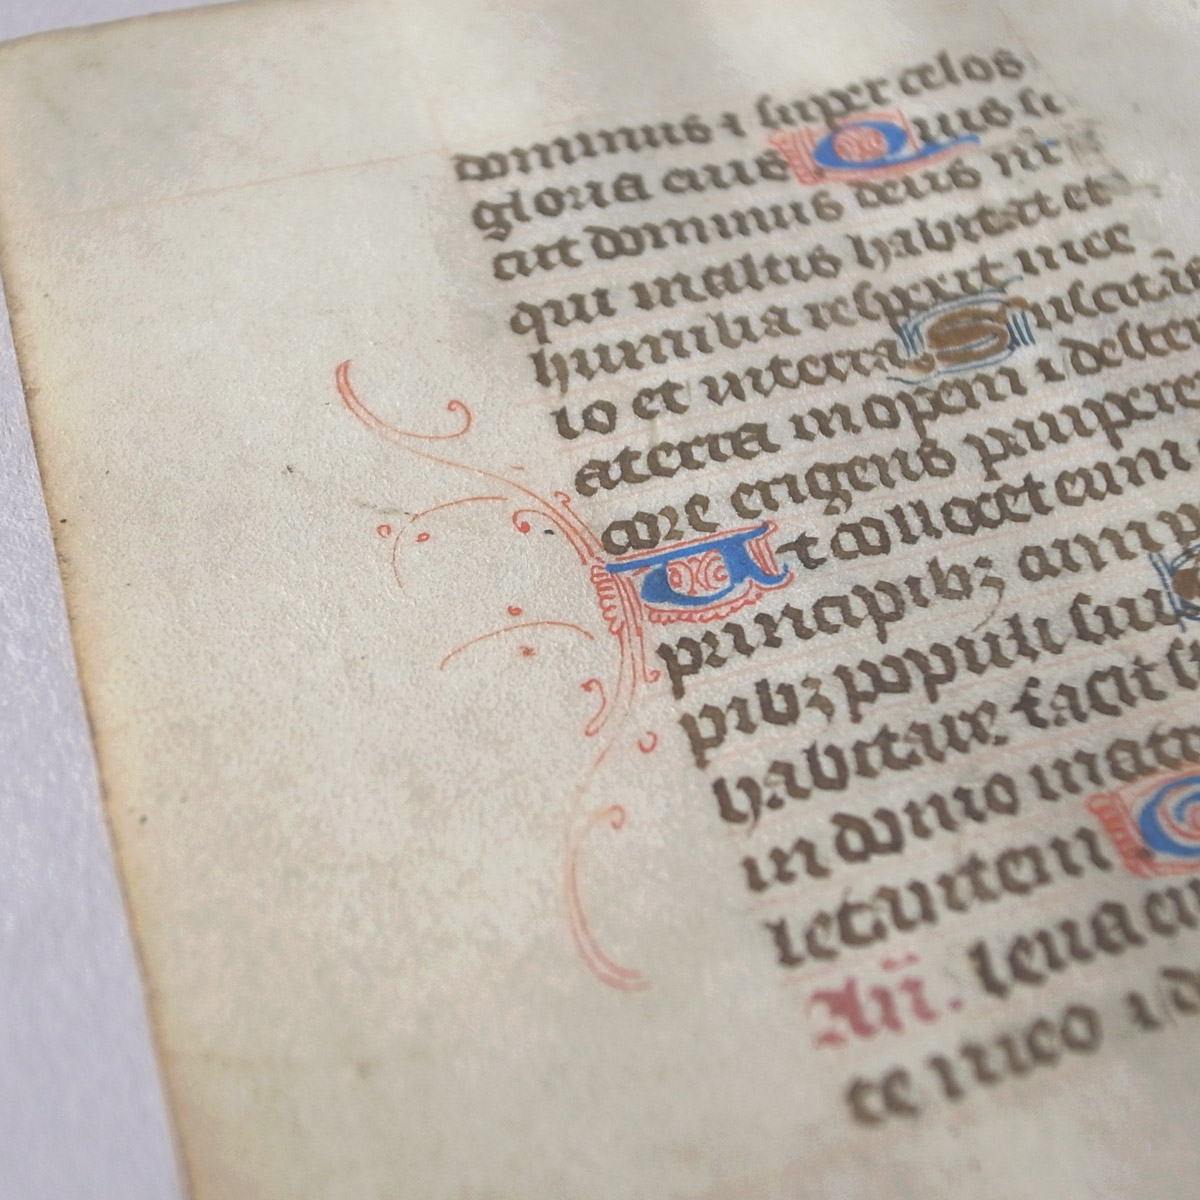 dominus ⁊ super celos
gloria eius Quis si
cut dominus deus nr̄
qui inaltis habitat et
humilia respicit ince
lo et interra Suscitās
aterra inopem ⁊ dester
core erigens paupere
Ut collocet eum
principibꝫ cum p
pibꝫ populi sui
habitare facit st
in domo matre
letantem
Añ. leua eiꝰ
te meo ⁊ d